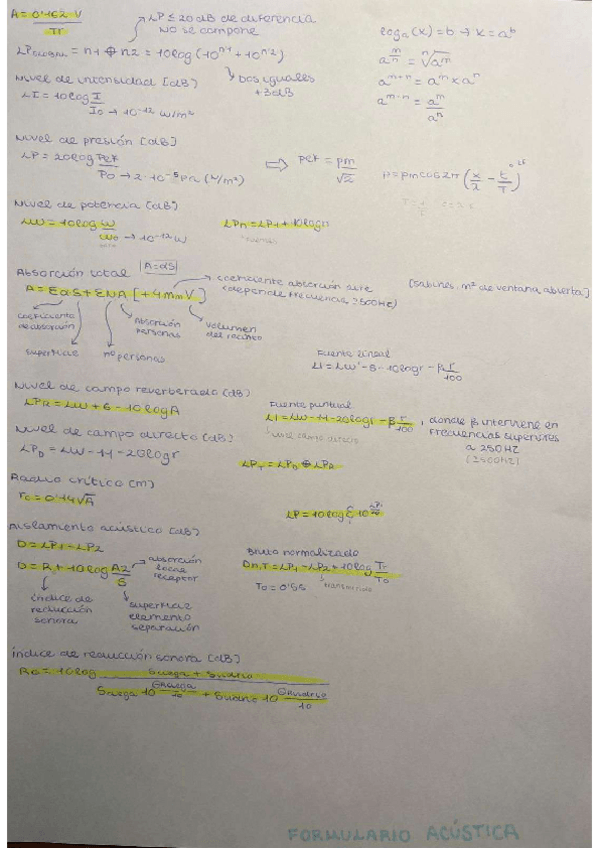 A = 0'162 V / Tr
LP ≤ 20 dB de diferencia
no se compone
LPglobal = n1 ⊕ n2 = 10log (10^n1 + 10^n2)
Dos iguales
+3dB
log a (x) = b → x = a^b
a^(m/n) = ⁿ√a^m
a^(m+n) = a^m x a^n
a^(m-n) = a^m / a^n
Nivel de intensidad [dB]
LI = 10log I / Io → 10^-12 W/m²
Nivel de presión [dB]
LP = 20log Pef / Po → 2·10^-5 Pa (N/m²)
⇨ Pef = Pm / √2
P = Pm cos 2π (x/λ - t/T)
Nivel de potencia (dB)
LW = 10log W / Wo → 10^-12 W
LPn = LP1 + 10logn
Absorción total
A = αS
coeficiente absorción aire
(depende frecuencia >500Hz)
[sabines, m² de ventana abierta]
A = ΣαS + ΣNA [+4mV]
coeficiente
de absorción
superficie
nº personas
Absorción
personas
volumen
del recinto
Fuente lineal
LI = LW' - 8 - 10logr - β r/100
Nivel de campo reverberado (dB)
LPR = LW + 6 - 10logA
Fuente puntual
LI = LW - 11 - 20logr - β r/100, donde β interviene en
frecuencias superiores
a 250Hz
(2500Hz)
nivel campo directo
Nivel de campo directo (dB)
LPD = LW - 11 - 20logr
LPT = LPD ⊕ LPR
Radio crítico (m)
rc = 0'14√A
LP = 10log Σ 10^(Pi/10)
Aislamiento acústico (dB)
D = LP1 - LP2
D = R + 10log A2 / S
absorción
local
receptor
índice de
reducción
sonora
superficie
elemento
separación
Bruto normalizado
Dn,T = LP1 - LP2 + 10log Tr / To
To = 0'5s
Índice de reducción sonora (dB)
RG = 10log Sciega + Shueco / Sciega 10^(-Rciega/10) + Shueco 10^(-Rhueco/10)
FORMULARIO ACÚSTICA